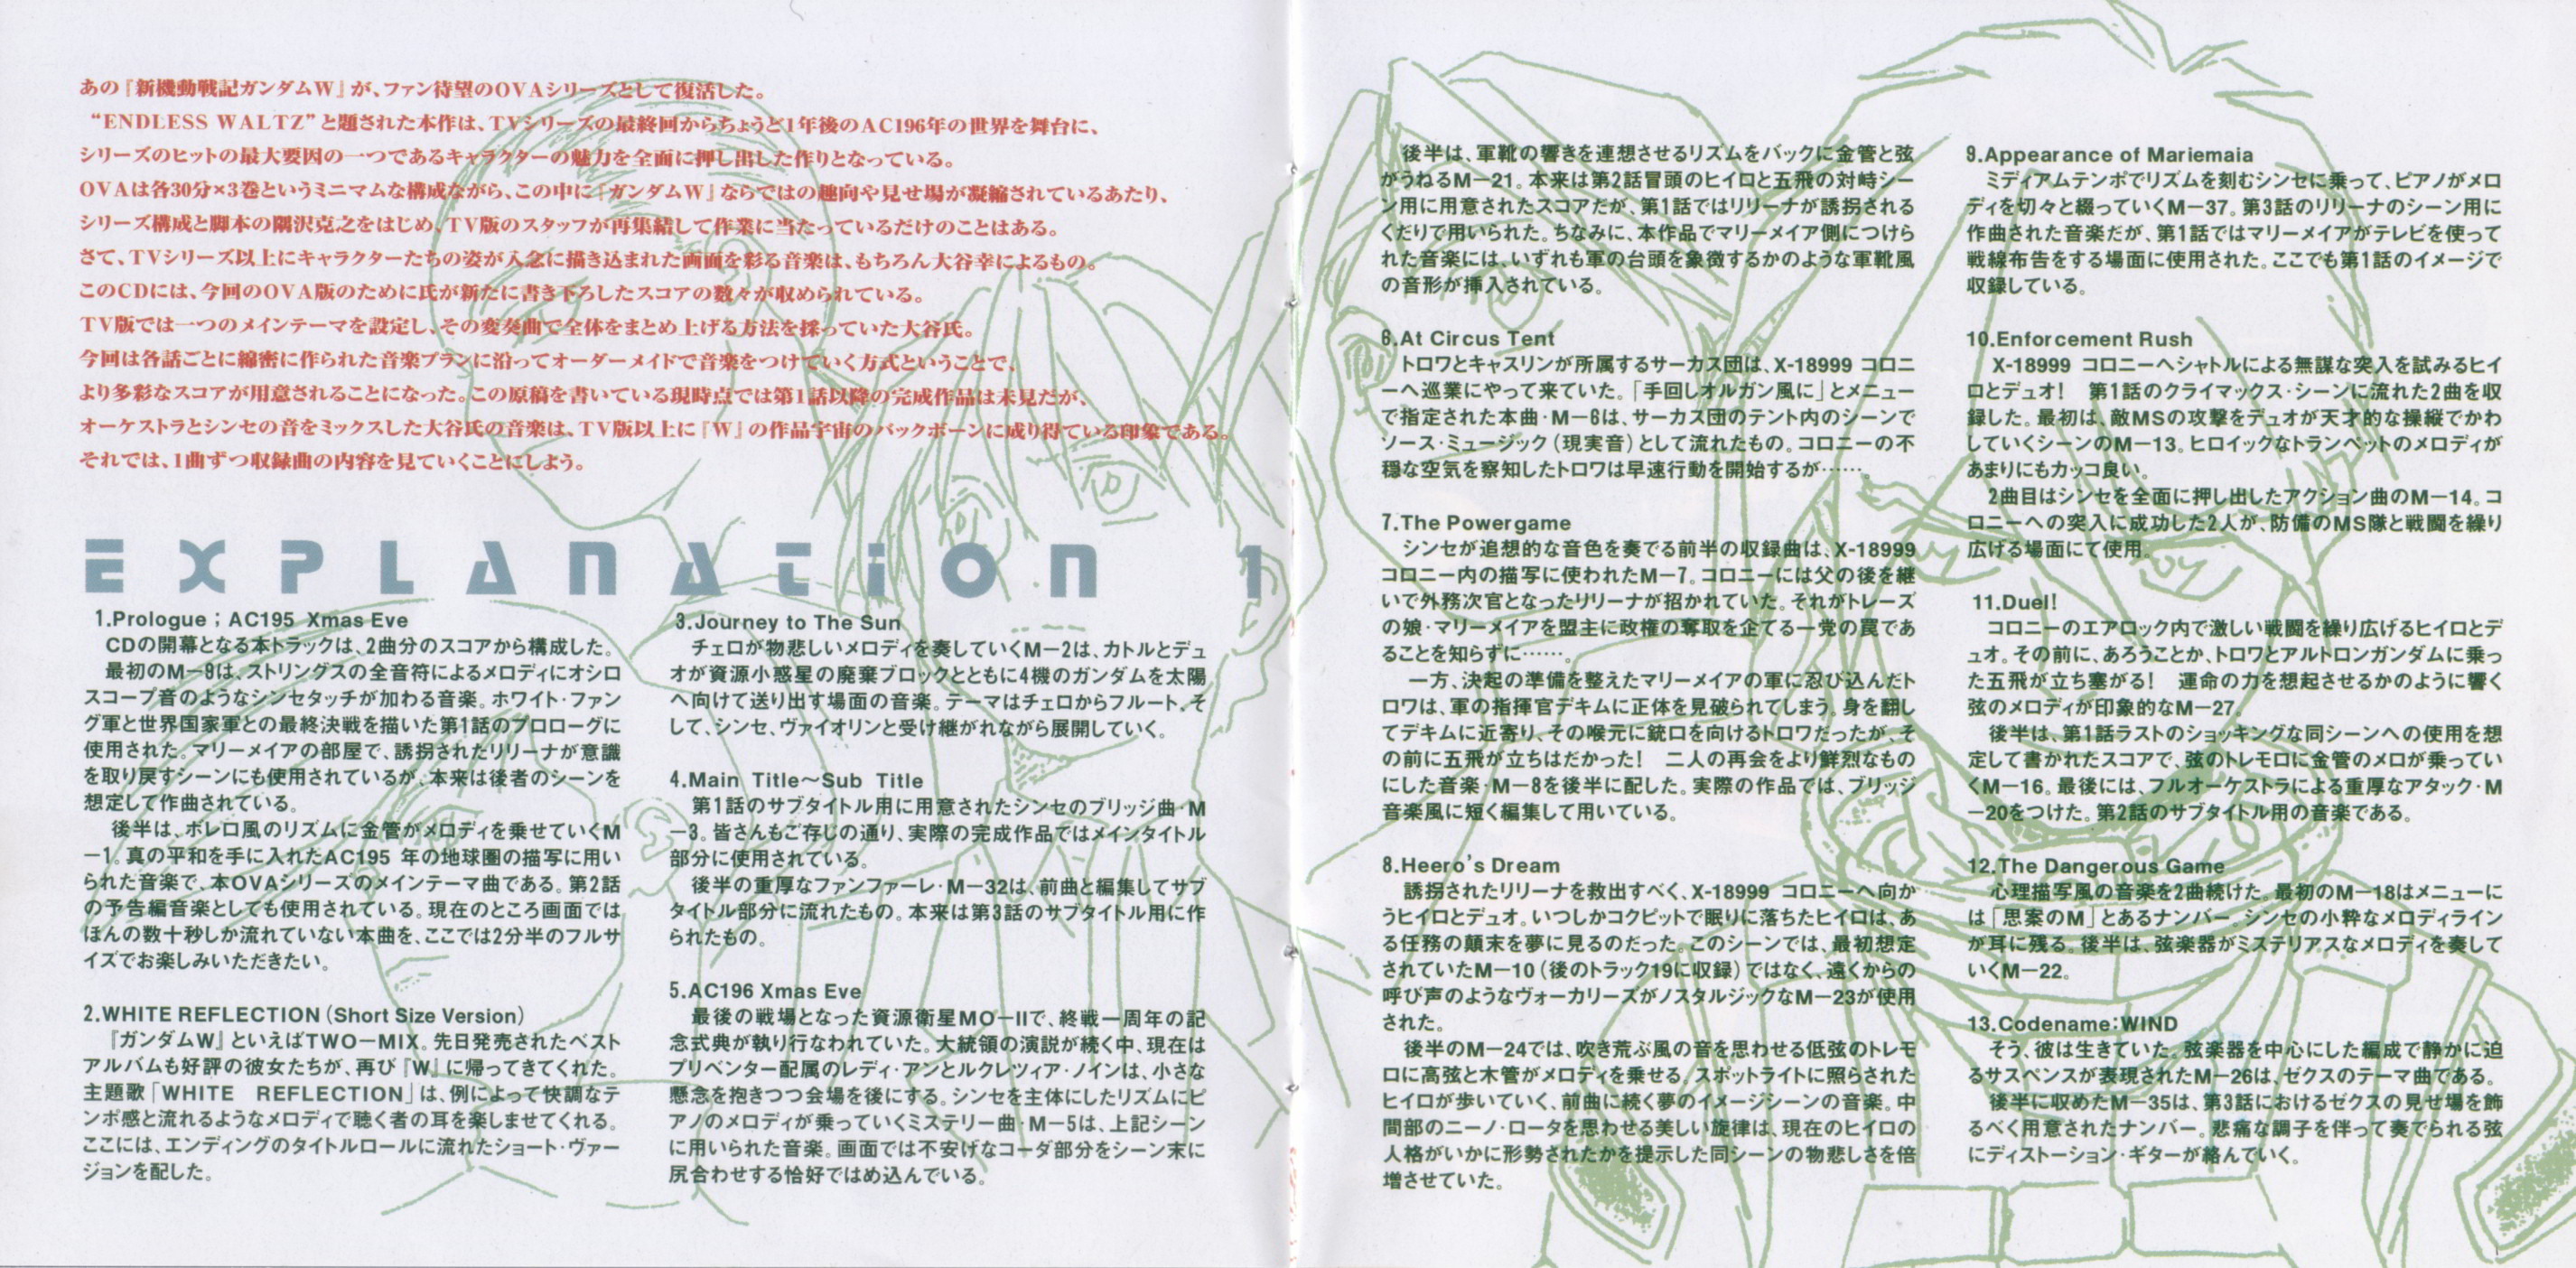 あの『新機動戦記ガンダムW』が、ファン待望のOVAシリーズとして復活した。
“ENDLESS WALTZ”と題された本作は、TVシリーズの最終回からちょうど1年後のAC196年の世界を舞台に、
シリーズのヒットの最大要因の一つであるキャラクターの魅力を全面に押し出した作りとなっている。
OVAは各30分×3巻というミニマムな構成ながら、この中に『ガンダムW』ならではの趣向や見せ場が凝縮されているあたり、
シリーズ構成と脚本の隅沢克之をはじめ、TV版のスタッフが再集結して作業に当たっているだけのことはある。
さて、TVシリーズ以上にキャラクターたちの姿が入念に描き込まれた画面を彩る音楽は、もちろん大谷幸によるもの。
このCDには、今回のOVA版のために氏が新たに書き下ろしたスコアの数々が収められている。
TV版では一つのメインテーマを設定し、その変奏曲で全体をまとめ上げる方法を採っていた大谷氏。
今回は各話ごとに綿密に作られた音楽プランに沿ってオーダーメイドで音楽をつけていく方式ということで、
より多彩なスコアが用意されることになった。この原稿を書いている現時点では第1話以降の完成作品は未見だが、
オーケストラとシンセの音をミックスした大谷氏の音楽は、TV版以上に『W』の作品宇宙のバックボーンに成り得ている印象である。
それでは、1曲ずつ収録曲の内容を見ていくことにしよう。
EXPLANATION 1
1.Prologue ; AC195 Xmas Eve
CDの開幕となる本トラックは、2曲分のスコアから構成した。
最初のM－9は、ストリングスの全音符によるメロディにオシロ
スコープ音のようなシンセタッチが加わる音楽。ホワイト・ファン
グ軍と世界国家軍との最終決戦を描いた第1話のプロローグに
使用された。マリーメイアの部屋で、誘拐されたリリーナが意識
を取り戻すシーンにも使用されているが、本来は後者のシーンを
想定して作曲されている。
後半は、ボレロ風のリズムに金管がメロディを乗せていくM
－1。真の平和を手に入れたAC195 年の地球圏の描写に用い
られた音楽で、本OVAシリーズのメインテーマ曲である。第2話
の予告編音楽としても使用されている。現在のところ画面では
ほんの数十秒しか流れていない本曲を、ここでは2分半のフルサ
イズでお楽しみいただきたい。
2.WHITE REFLECTION（Short Size Version）
『ガンダムW』といえばTWO－MIX。先日発売されたベスト
アルバムも好評の彼女たちが、再び『W』に帰ってきてくれた。
主題歌「WHITE　REFLECTION」は、例によって快調なテ
ンポ感と流れるようなメロディで聴く者の耳を楽しませてくれる。
ここには、エンディングのタイトルロールに流れたショート・ヴァー
ジョンを配した。
3.Journey to The Sun
チェロが物悲しいメロディを奏していくM－2は、カトルとデュ
オが資源小惑星の廃棄ブロックとともに4機のガンダムを太陽
へ向けて送り出す場面の音楽。テーマはチェロからフルート、そ
して、シンセ、ヴァイオリンと受け継がれながら展開していく。
4.Main Title～Sub Title
第1話のサブタイトル用に用意されたシンセのブリッジ曲・M
－3。皆さんもご存じの通り、実際の完成作品ではメインタイトル
部分に使用されている。
後半の重厚なファンファーレ・M－32は、前曲と編集してサブ
タイトル部分に流れたもの。本来は第3話のサブタイトル用に作
られたもの。
5.AC196 Xmas Eve
最後の戦場となった資源衛星MO－IIで、終戦一周年の記
念式典が執り行なわれていた。大統領の演説が続く中、現在は
プリベンター配属のレディ・アンとルクレツィア・ノインは、小さな
懸念を抱きつつ会場を後にする。シンセを主体にしたリズムにピ
アノのメロディが乗っていくミステリー曲・M－5は、上記シーン
に用いられた音楽。画面では不安げなコーダ部分をシーン末に
尻合わせする恰好ではめ込んでいる。
後半は、軍靴の響きを連想させるリズムをバックに金管と弦
がうねるM－21。本来は第2話冒頭のヒイロと五飛の対峙シー
ン用に用意されたスコアだが、第1話ではリリーナが誘拐される
くだりで用いられた。ちなみに、本作品でマリーメイア側につけら
れた音楽には、いずれも軍の台頭を象徴するかのような軍靴風
の音形が挿入されている。
6.At Circus Tent
トロワとキャスリンが所属するサーカス団は、X-18999 コロニ
ーへ巡業にやって来ていた。「手回しオルガン風に」とメニュー
で指定された本曲・M－6は、サーカス団のテント内のシーンで
ソース・ミュージック（現実音）として流れたもの。コロニーの不
穏な空気を察知したトロワは早速行動を開始するが……。
7.The Powergame
シンセが追想的な音色を奏でる前半の収録曲は、X-18999
コロニー内の描写に使われたM－7。コロニーには父の後を継
いで外務次官となったリリーナが招かれていた。それがトレーズ
の娘・マリーメイアを盟主に政権の奪取を企てる一党の罠であ
ることを知らずに……。
一方、決起の準備を整えたマリーメイアの軍に忍び込んだト
ロワは、軍の指揮官デキムに正体を見破られてしまう。身を翻し
てデキムに近寄り、その喉元に銃口を向けるトロワだったが、そ
の前に五飛が立ちはだかった！　二人の再会をより鮮烈なもの
にした音楽・M－8を後半に配した。実際の作品では、ブリッジ
音楽風に短く編集して用いている。
8.Heero's Dream
誘拐されたリリーナを救出すべく、X-18999 コロニーへ向か
うヒイロとデュオ。いつしかコクピットで眠りに落ちたヒイロは、あ
る任務の顛末を夢に見るのだった。このシーンでは、最初想定
されていたM－10（後のトラック19に収録）ではなく、遠くからの
呼び声のようなヴォーカリーズがノスタルジックなM－23が使用
された。
後半のM－24では、吹き荒ぶ風の音を思わせる低弦のトレモ
ロに高弦と木管がメロディを乗せる。スポットライトに照らされた
ヒイロが歩いていく、前曲に続く夢のイメージシーンの音楽。中
間部のニーノ・ロータを思わせる美しい旋律は、現在のヒイロの
人格がいかに形勢されたかを提示した同シーンの物悲しさを倍
増させていた。
9.Appearance of Mariemaia
ミディアムテンポでリズムを刻むシンセに乗って、ピアノがメロ
ディを切々と綴っていくM－37。第3話のリリーナのシーン用に
作曲された音楽だが、第1話ではマリーメイアがテレビを使って
戦線布告をする場面に使用された。ここでも第1話のイメージで
収録している。
10.Enforcement Rush
X-18999 コロニーへシャトルによる無謀な突入を試みるヒイ
ロとデュオ！　第1話のクライマックス・シーンに流れた2曲を収
録した。最初は、敵MSの攻撃をデュオが天才的な操縦でかわ
していくシーンのM－13。ヒロイックなトランペットのメロディが
あまりにもカッコ良い。
2曲目はシンセを全面に押し出したアクション曲のM－14。コ
ロニーへの突入に成功した2人が、防備のMS隊と戦闘を繰り
広げる場面にて使用。
11.Duel!
コロニーのエアロック内で激しい戦闘を繰り広げるヒイロとデ
ュオ。その前に、あろうことか、トロワとアルトロンガンダムに乗っ
た五飛が立ち塞がる！　運命の力を想起させるかのように響く
弦のメロディが印象的なM－27。
後半は、第1話ラストのショッキングな同シーンへの使用を想
定して書かれたスコアで、弦のトレモロに金管のメロが乗ってい
くM－16。最後には、フルオーケストラによる重厚なアタック・M
－20をつけた。第2話のサブタイトル用の音楽である。
12.The Dangerous Game
心理描写風の音楽を2曲続けた。最初のM－18はメニューに
は「思案のM」とあるナンバー。シンセの小粋なメロディライン
が耳に残る。後半は、弦楽器がミステリアスなメロディを奏して
いくM－22。
13.Codename:WIND
そう、彼は生きていた。弦楽器を中心にした編成で静かに迫
るサスペンスが表現されたM－26は、ゼクスのテーマ曲である。
後半に収めたM－35は、第3話におけるゼクスの見せ場を飾
るべく用意されたナンバー。悲痛な調子を伴って奏でられる弦
にディストーション・ギターが絡んでいく。